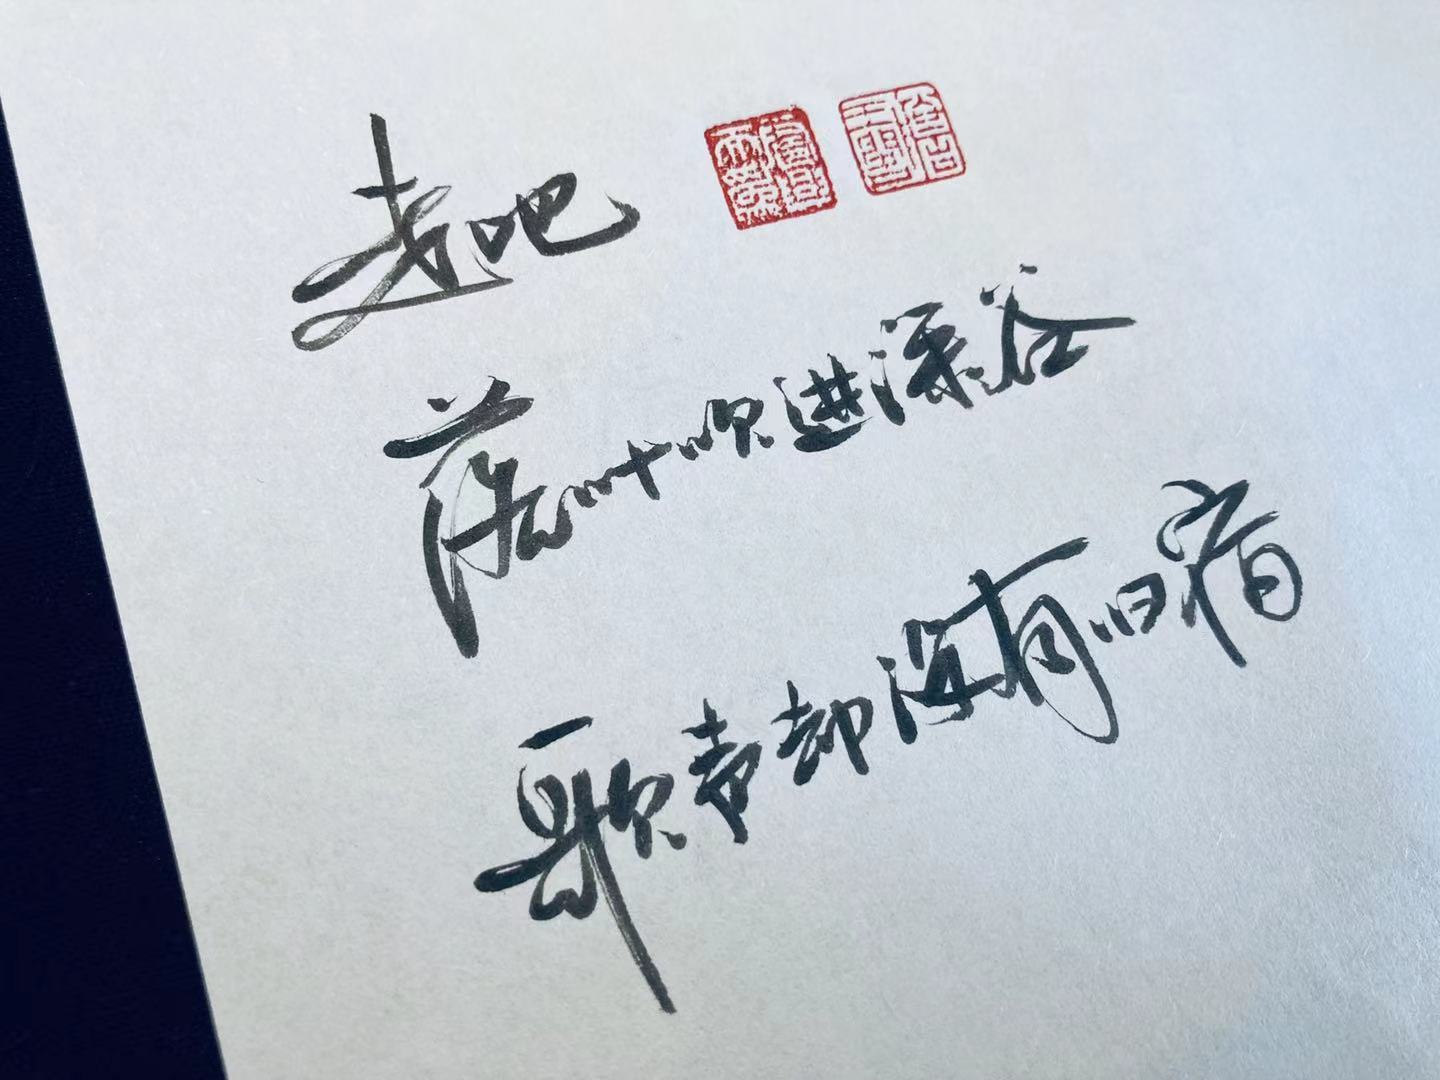 走吧
落叶吹进深谷
歌声却没有归宿